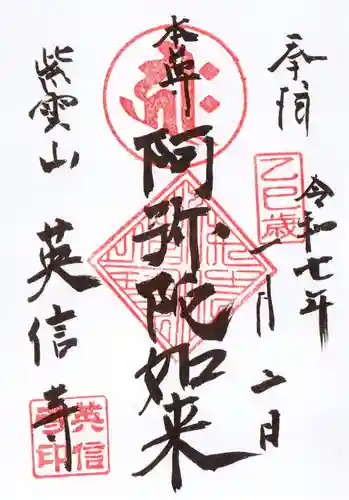 奉拝
令和七年
乙巳歳
一月二日
本尊
阿弥陀如来
紫雲山
英信寺
英信寺印